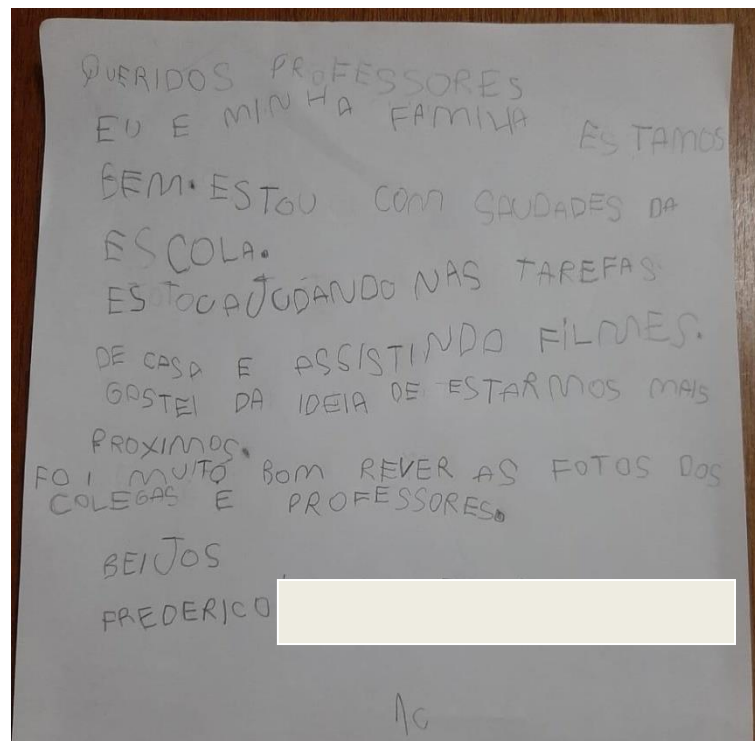 QUERIDOS PROFESSORES
EU E MINHA FAMILIA ESTAMOS
BEM. ESTOU COM SAUDADES DA
ESCOLA.
ESTOU AJUDANDO NAS TAREFAS
DE CASA E ASSISTINDO FILMES.
GOSTEI DA IDEIA DE ESTARMOS MAIS
PROXIMOS.
FOI MUITO BOM REVER AS FOTOS DOS
COLEGAS E PROFESSORES.
BEIJOS
FREDERICO
1C